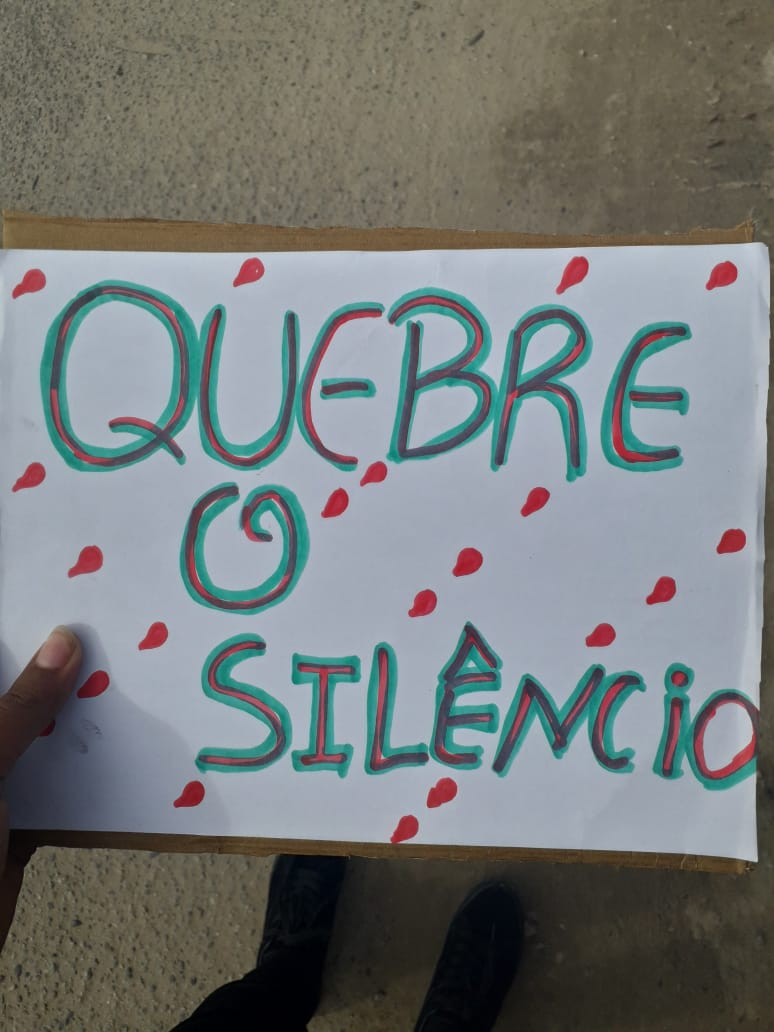 QUEBRE
O
SILÊNCiO